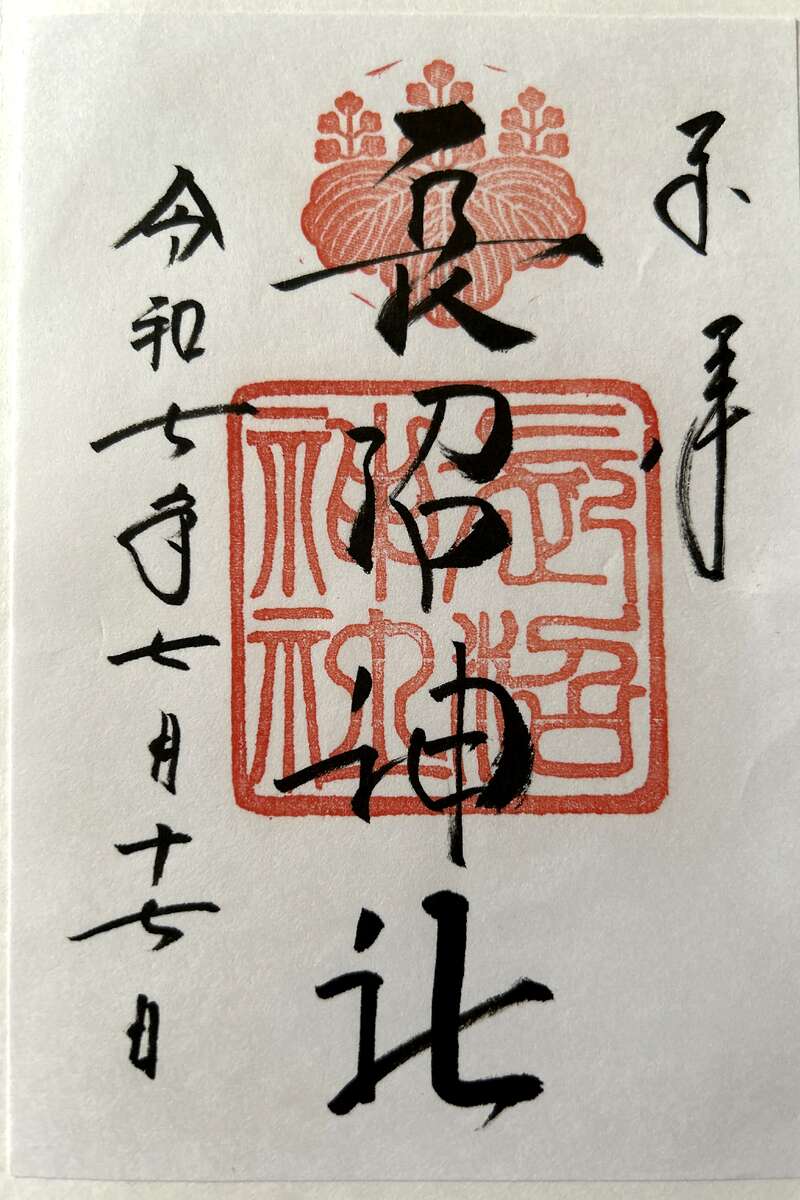 奉拝
長沼神社
長沼
神社
令和七年七月十七日